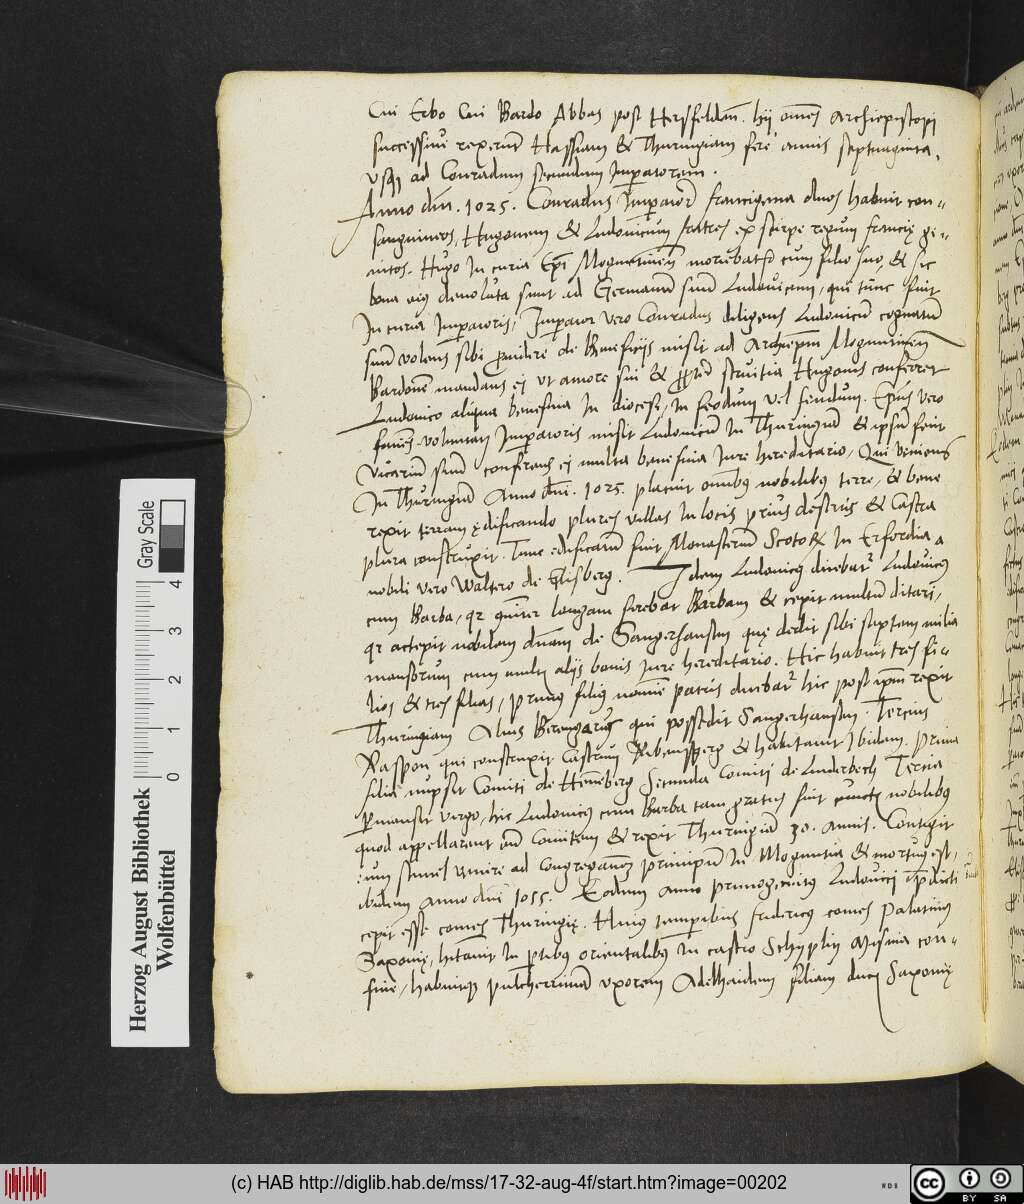 Cui Erbo Cui Bardo Abbas post Hersfelden̄. hij om̄es Archiepiscopi
successiue rexerunt Hassiam & Thuringiam fere annis septuaginta,
vsq3 ad Conradum secundum Imperatorem.
Anno dn̄i. 1025. Conradus Imperator francigena duos habuit con-
sanguineos, Hugonem & Ludouicum fratres ex stirpe regum francię ge-
nitos. Hugo In curia Ep̄i Moguntinen̄ moriebat᷑ cum filio suo, & sic
bona eius deuoluta sunt ad Germanū suū Ludouicum, qui tunc fuit
In curia Imperatoris, Imperator vero Conradus diligens Ludouicū cognatū
suū volens sibi ꝓuidere de Beneficijs misit ad Archiep̄m Moguntinen̄
Bardonē mandans ei vt amore sui & ꝓpter seruitia Hugonis conferret
Ludouico aliqua beneficia In diocesi, In feodum vel feudum. Ep̄us vero
fauens voluntati Imperatoris misit Ludouicū In Thuringiā & ipsū fecit
vicariū suū conferens ei multa beneficia Iure hereditario, Qui veniens
In Thuringiā Anno dn̄i. 1025. placuit omībus nobilibus terre, & bene
rexit terram ędificando plures villas In locis prius desertis & Castra
plura construxit. Tunc edificatum fuit Monasterium Scotoꝝ In Erfordia a
nobili vero Waltero de Glisberg. Idem Ludouicus dicebat᷑ Ludouicus
cum Barba, qr longam ferebat Barbam & cepit multum ditari,
qr accepit nobilem dnām de Sangerhausen quę dedit sibi septem milia
mansorum cum multis alijs bonis iure hereditario. Hic habuit tres fi-
lios & tres filias, primus filius nomē patris dicebat᷑ hic post ipm̄ rexit
Thuringiam Alius Berengarius qui possedit Sangerhausen. Tercius
Raspon qui construxit Castrum & habitauit Ibidem. Prima
filia nupsit Comiti de Henneberg Secunda Comiti de Linderbech Tercia
ꝑmansit virgo, hic Ludouicus cum Barba tam gratus fuit cunctis nobilibus
quod appellarant eum Comitem & rexit Thuringiā 30. annis. Contigit
eum semel venire ad congreganc̄ principū In Moguntia & mortuus est,
ibidem anno dn̄i 1055. Eodem anno primogenitus Ludouici p̄dicti
cepit esse comes Thuringię. Huius temporibus fridericus comes Palatinus
Saxonię, hītauit In ꝑtibus orientalibus In castro Schyplitz Misnia con-
fine, habuitq3 pulcherrimā vxorem Adelhaidem filiam ducis Saxonię
Herzog August Bibliothek
Wolfenbüttel
Gray Scale
0 1 2 3 4
(c) HAB http://diglib.hab.de/mss/17-32-aug-4f/start.htm?image=00202
WDB
cc BY SA